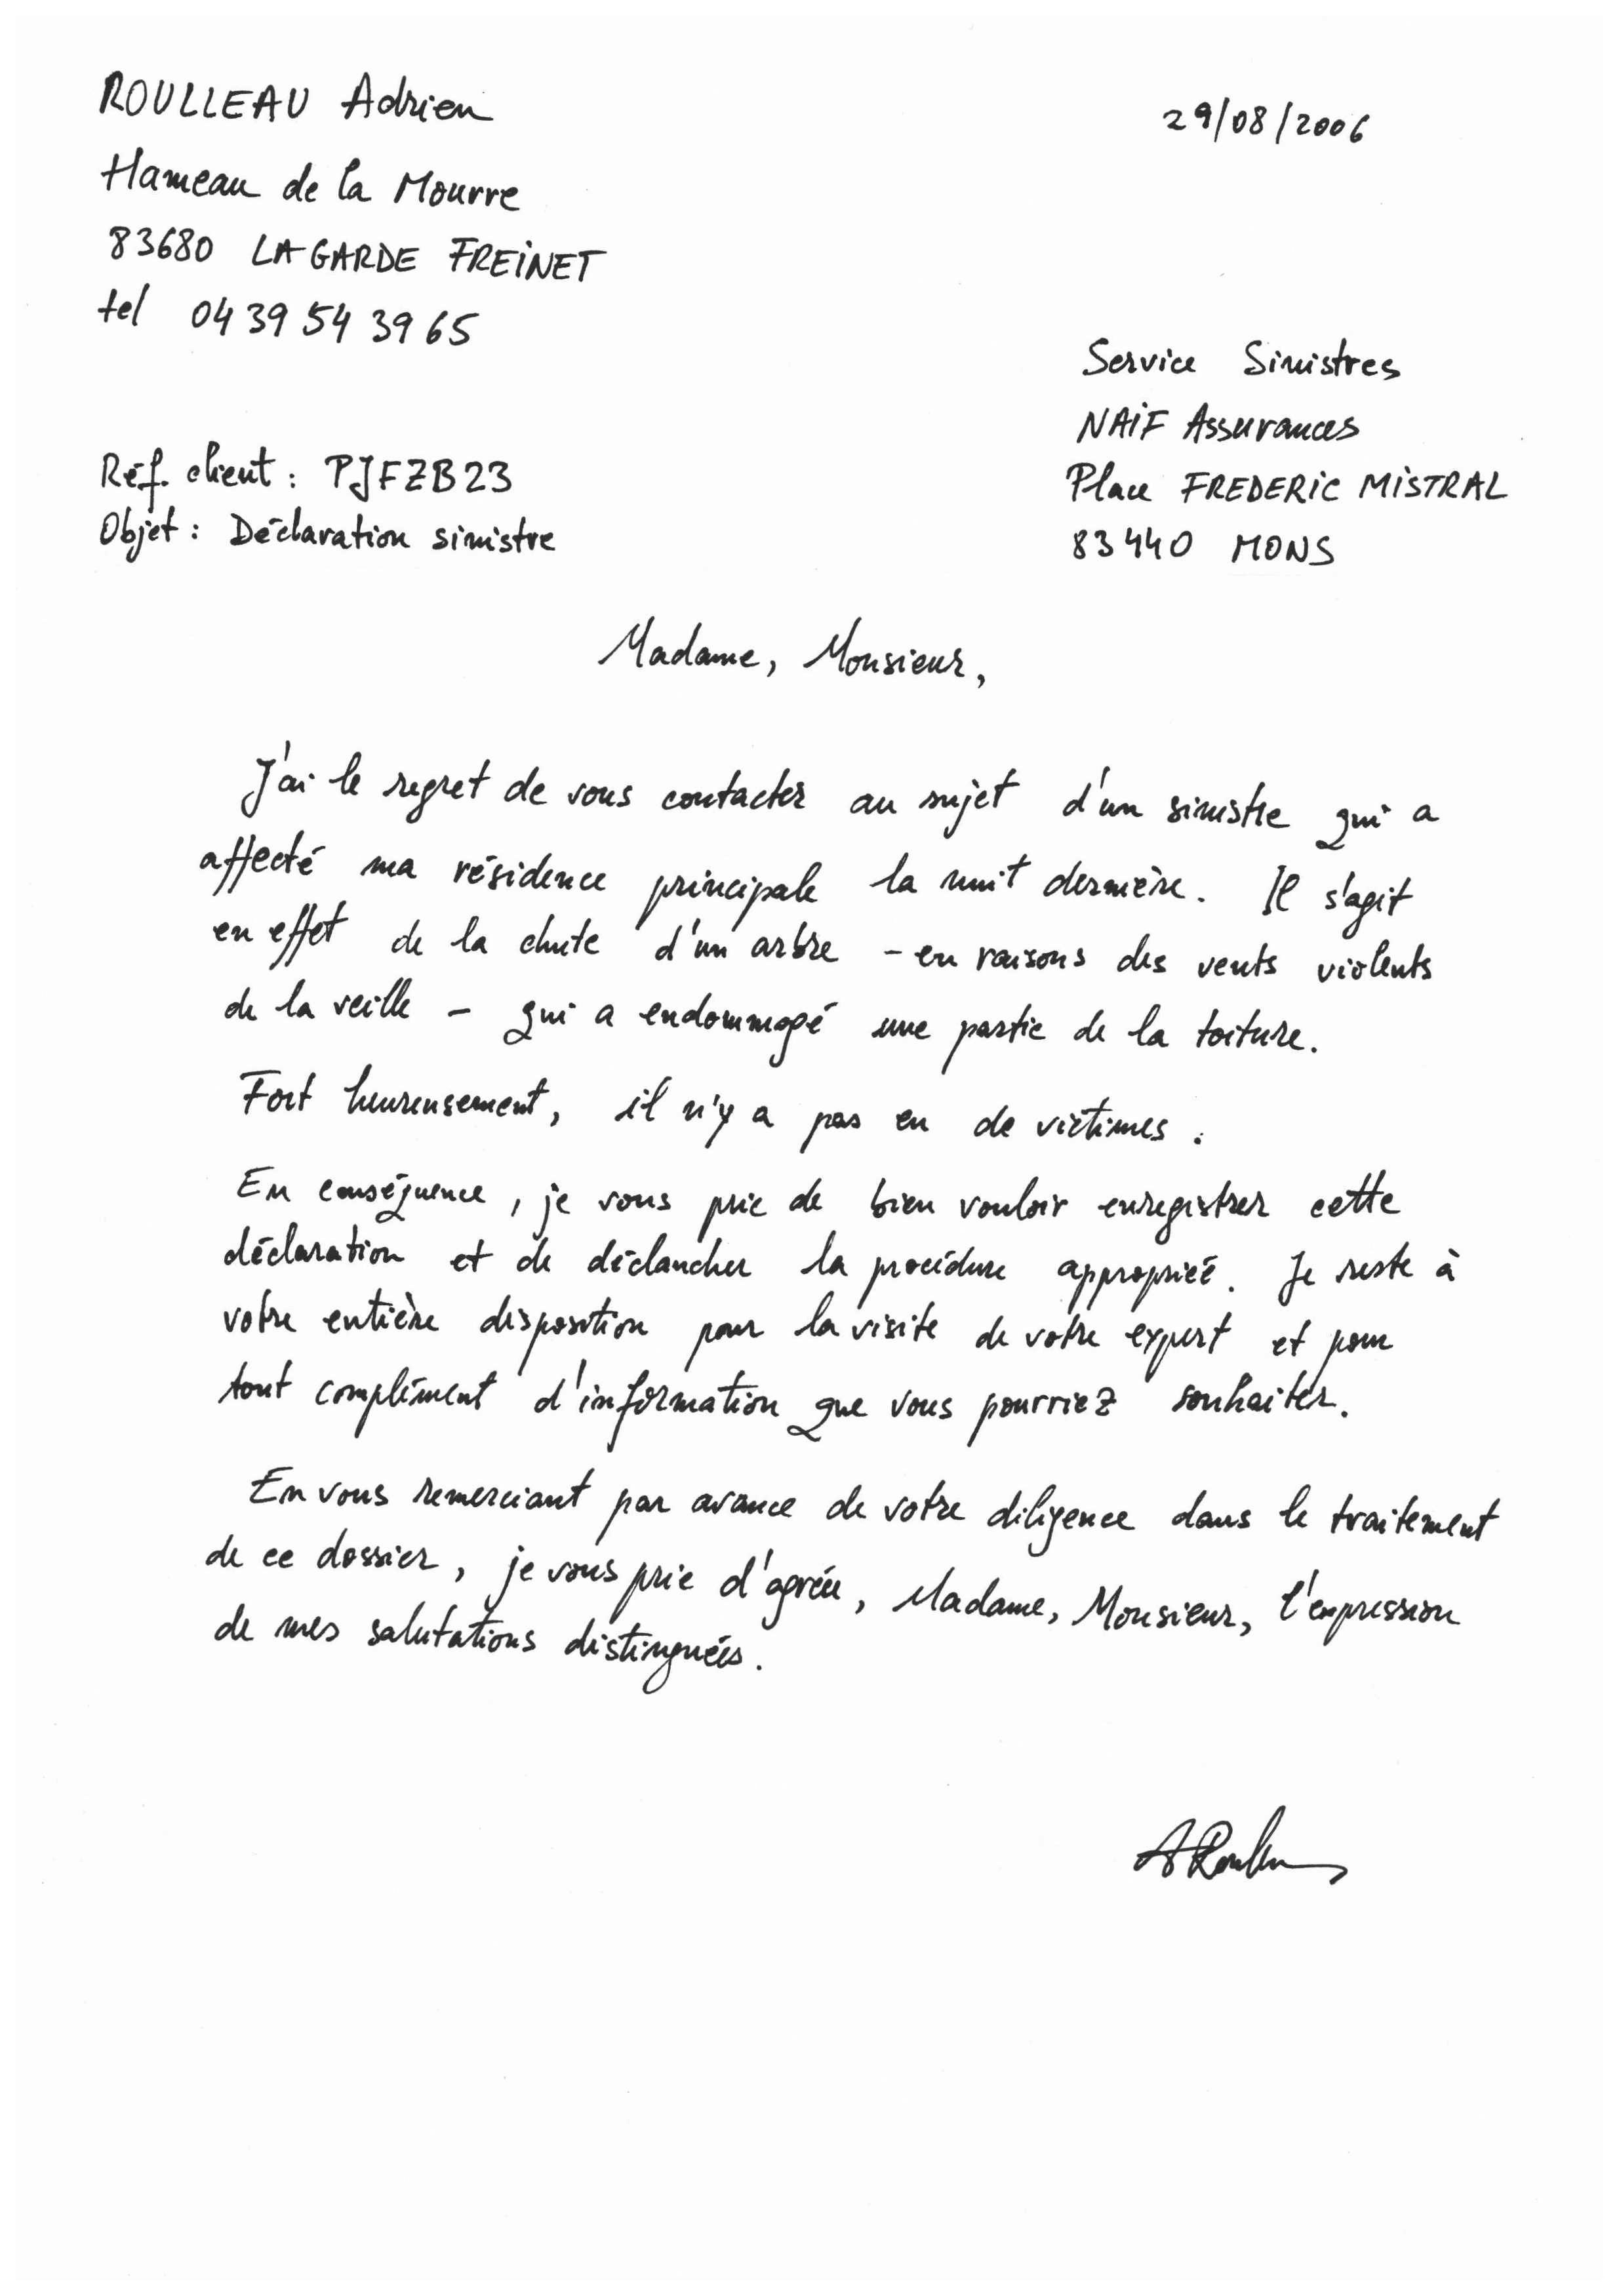 ROULLEAU Adrien
29/08/2006
Hameau de la Mourre
83680 LA GARDE FREiNET
tel 04 39 54 39 65
Service Sinistres
NAiF Assurances
Place FREDERiC MiSTRAL
83440 MONS
Réf. client : PJFZB23
Objet : Déclaration sinistre
Madame, Monsieur,
J'ai le regret de vous contacter au sujet d'un sinistre qui a
affecté ma résidence principale la nuit dernière. Il s'agit
en effet de la chute d'un arbre - en raisons des vents violents
de la veille - qui a endommagé une partie de la toiture.
Fort heureusement, il n'y a pas eu de victimes.
En conséquence, je vous prie de bien vouloir enregistrer cette
déclaration et de déclancher la procédure appropriée. Je reste à
votre entière disposition pour la visite de votre expert et pour
tout complément d'information que vous pourriez souhaiter.
En vous remerciant par avance de votre diligence dans le traitement
de ce dossier, je vous prie d'agréer, Madame, Monsieur, l'expression
de mes salutations distinguées.